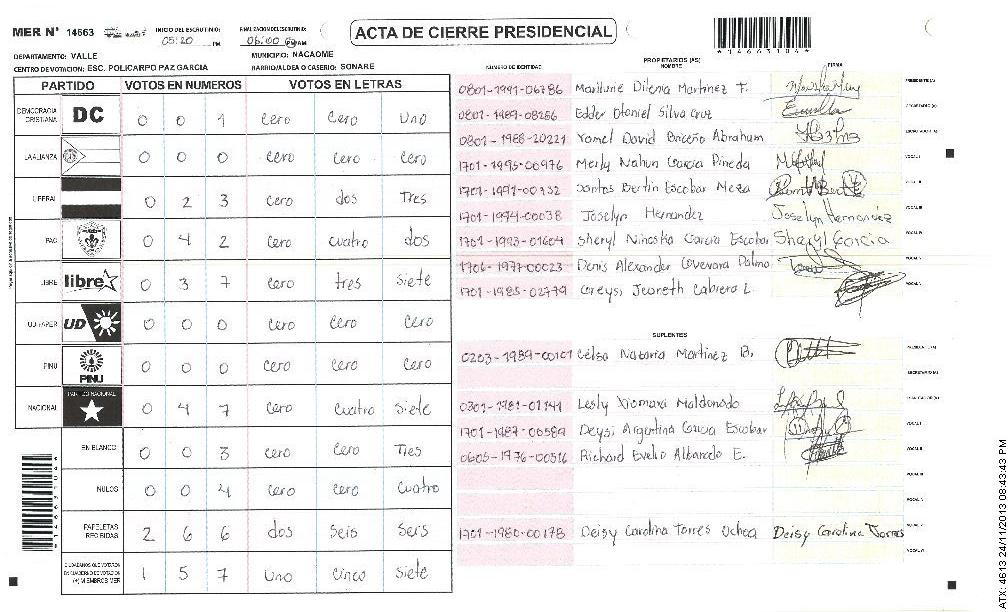 MER N° 14663
INICIO DEL ESCRUTINIO: 05:20 PM
FINALIZACION DEL ESCRUTINIO: 06:00 PM/AM
ACTA DE CIERRE PRESIDENCIAL
*14663104*
DEPARTAMENTO: VALLE
MUNICIPIO: NACAOME
CENTRO DE VOTACION: ESC. POLICARPO PAZ GARCIA
BARRIO/ALDEA O CASERIO: SONARE
PARTIDO VOTOS EN NUMEROS VOTOS EN LETRAS
DEMOCRACIA CRISTIANA DC 0 0 1 cero cero uno
LA ALIANZA 0 0 0 cero cero cero
LIBERAL 0 2 3 cero dos Tres
PAC 0 4 2 cero cuatro dos
LIBRE libre 0 3 7 cero tres siete
UD-FAPER UD 0 0 0 cero cero cero
PINU PINU 0 0 0 cero cero cero
NACIONAL PARTIDO NACIONAL 0 4 7 cero cuatro siete
EN BLANCO 0 0 3 cero cero Tres
NULOS 0 0 4 cero cero cuatro
PAPELETAS RECIBIDAS 2 6 6 dos seis seis
CIUDADANOS QUE VOTARON EN CUADERNO DE VOTACION (+) MIEMBROS MER 1 5 7 uno cinco siete
PROPIETARIOS (AS)
NUMERO DE IDENTIDAD NOMBRE FIRMA
0801-1991-06786 Marilune Dilenia Martinez F. PRESIDENTE(A)
0801-1989-08256 Edder Otoniel Silva Cruz SECRETARIO(A)
0801-1988-20221 Yomel David Briceño Abraham ESCRUTADOR(A)
1701-1995-00976 Merly Nahun Garcia Pineda VOCAL I
1701-1997-00332 Santos Bertin Escobar Meza VOCAL II
1701-1994-00038 Joselyn Hernandez Joselyn Hernandez VOCAL III
1701-1993-01604 Sheryl Ninoska Garcia Escobar Sheryl Garcia VOCAL IV
1706-1977-00023 Denis Alexander Guevara Palma VOCAL V
1701-1985-02779 Greysi Jeaneth Cabrera L. VOCAL VI
SUPLENTES
0203-1989-00101 Celsa Nataria Martinez B. PRESIDENTE(A)
SECRETARIO(A)
0301-1981-01141 Lesly Xiomara Maldonado ESCRUTADOR(A)
1701-1987-00589 Deysi Argentina Garcia Escobar VOCAL I
0605-1976-00516 Richard Evelio Albarado E. VOCAL II
VOCAL III
VOCAL IV
1701-1980-00178 Deisy Carolina Torres Ochoa Deisy Carolina Torres VOCAL V
VOCAL VI
ATX: 4613 24/11/2013 08:43:43 PM